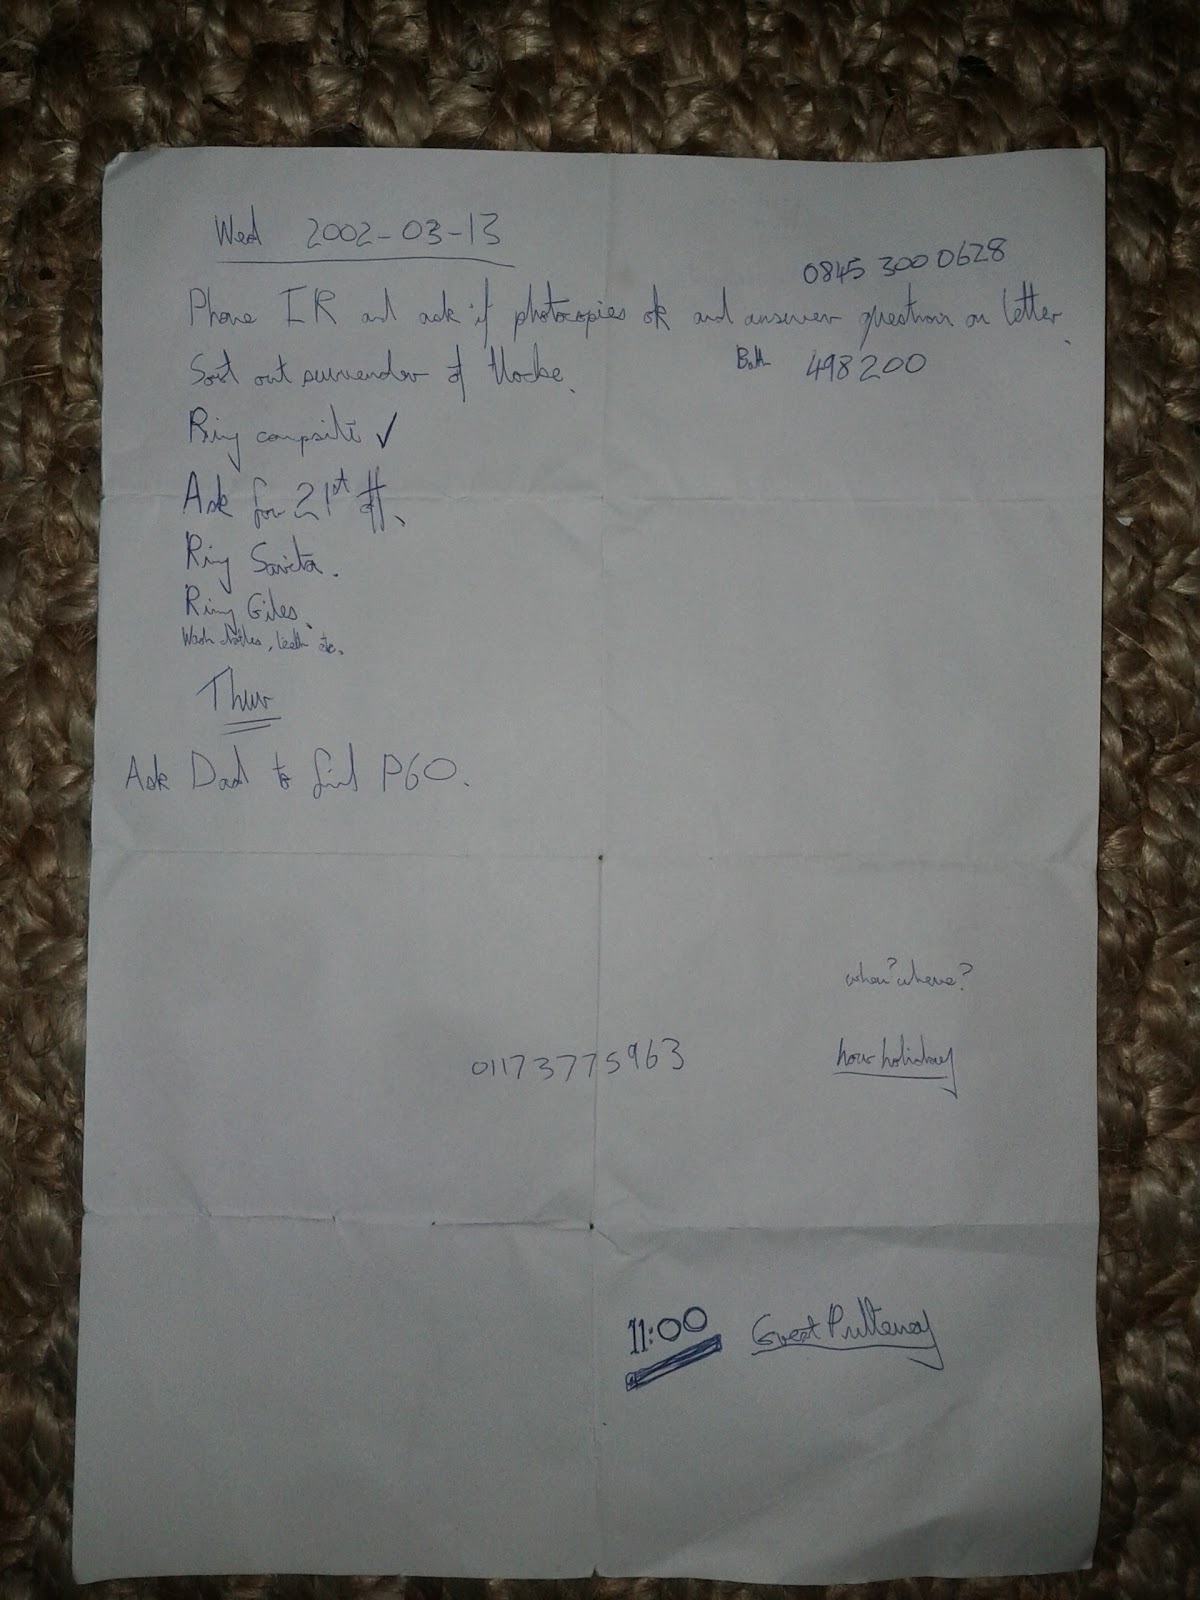 Wed 2002-03-13
0845 300 0628
Phone IR and ask if photocopies ok and answer questions on letter.
Sort out surrender of
Bath 498200
Ring compsite ✓
Ask for 21st off.
Ring Savita.
Ring Giles.
Wash clothes, teeth etc.
Thur
Ask Dad to find P60.
when? where?
01173775963
how holiday
11:00 Great Pulteney